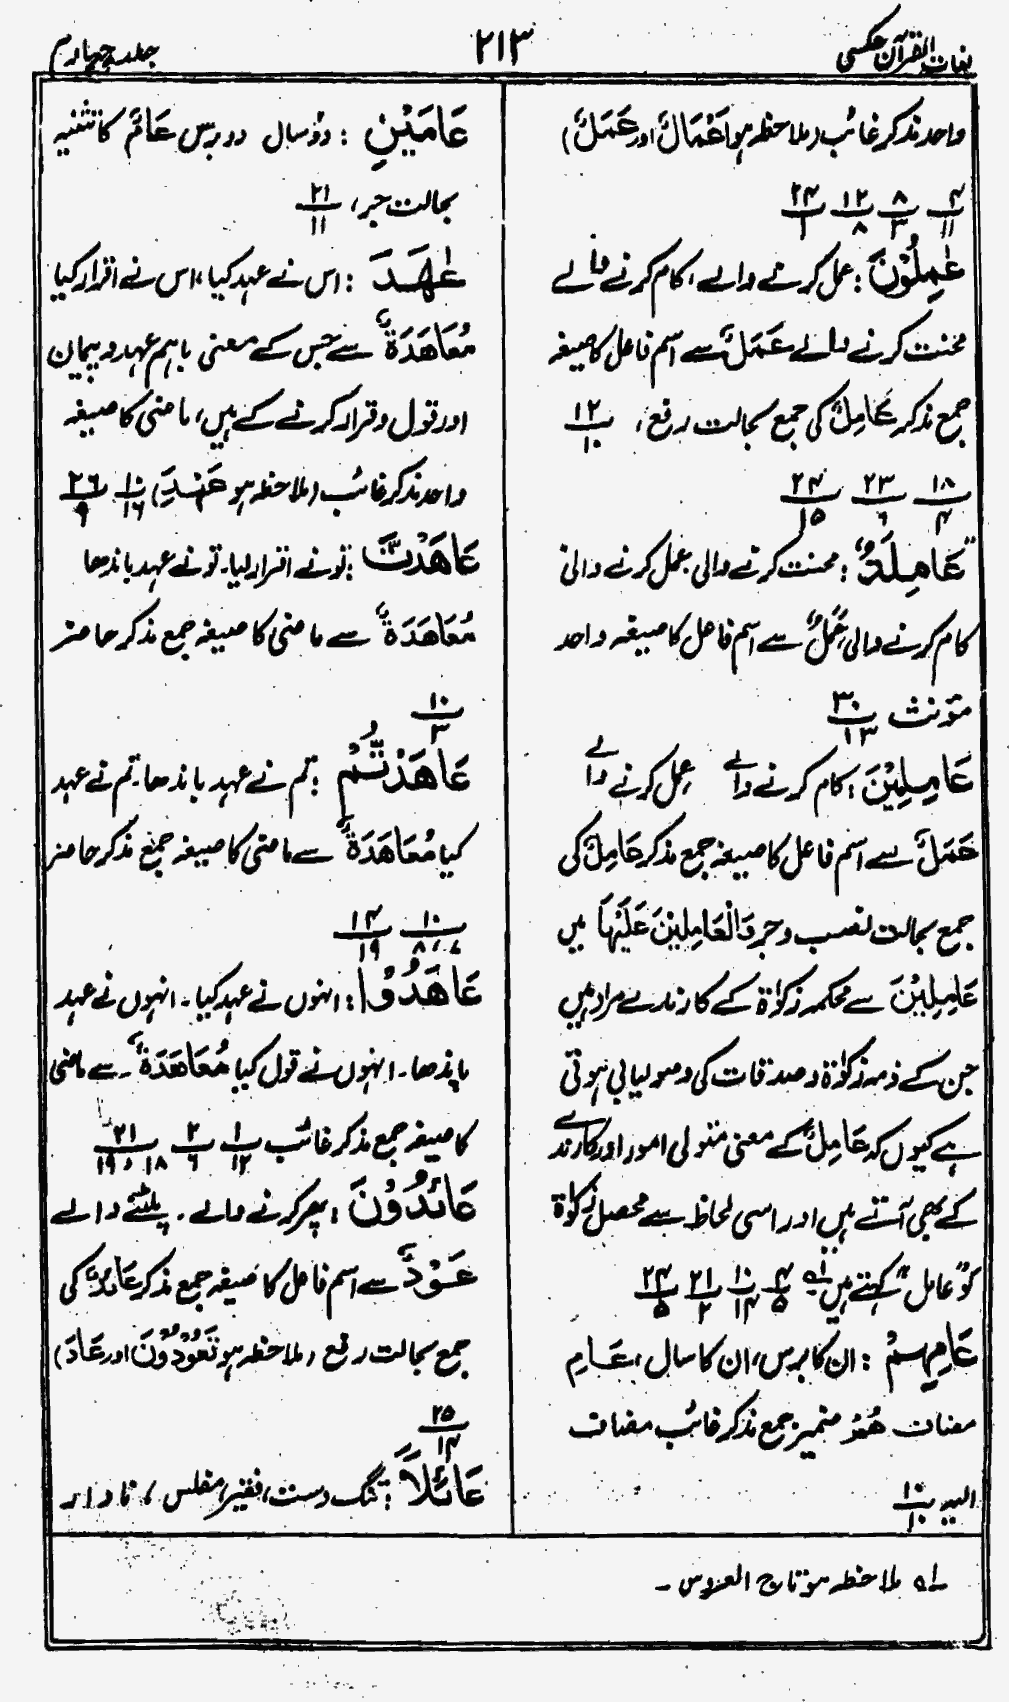 لغات القرآن عکسی
۲۱۳
جلد چہارم
واحد مذکر غائب (ملاحظہ ہو اَعْمَالٌ اور عَمَلٌ)
۴/۱۱ ۸/۳ ۱۲/۸ ۲۴/۱
عٰمِلُوْنَ : عمل کرنے والے، کام کرنے والے
محنت کرنے والے عَمَلٌ سے اسم فاعل کا صیغہ
جمع مذکر عَامِلٌ کی جمع بحالت رفع، ۱۲/۱۰
۱۸/۴ ۲۳/۶ ۲۴/۱۵
عَامِلَةٌ : محنت کرنے والی عمل کرنے والی
کام کرنے والی عَمَلٌ سے اسم فاعل کا صیغہ واحد
مؤنث ۳۰/۱۳
عَامِلِیْنَ : کام کرنے والے عمل کرنے والے
عَمَلٌ سے اسم فاعل کا صیغہ جمع مذکر عَامِلٌ کی
جمع بحالت نصب و جر وَالْعَامِلِیْنَ عَلَیْهَا میں
عَامِلِیْنَ سے محکمہ زکوٰۃ کے کارندے مراد ہیں
جن کے ذمہ زکوٰۃ و صدقات کی وصولیابی ہوتی
ہے کیوں کہ عَامِلٌ کے معنی متولی امور اور کارندے
کے بھی آتے ہیں اور اسی لحاظ سے محصل زکوٰۃ
کو "عامل" کہتے ہیں لہ ۴/۵ ۱۰/۱۴ ۲۱/۲ ۲۴/۵
عَامِهِمْ : ان کا برس، ان کا سال، عَامِ
مضاف هُمْ ضمیر جمع مذکر غائب مضاف
الیہ ۱۰/۱۰
عَامَیْنِ : دو سال دو برس عَامٌ کا تثنیہ
بحالت جر، ۲۱/۱۱
عٰهَدَ : اس نے عہد کیا، اس نے اقرار کیا
مُعَاهَدَةٌ سے جس کے معنی باہم عہد و پیمان
اور قول و قرار کرنے کے ہیں، ماضی کا صیغہ
واحد مذکر غائب (ملاحظہ ہو عَهْدٌ) ۱۰/۱۶ ۲۶/۹
عَاهَدْتَّ : تو نے اقرار لیا۔ تو نے عہد باندھا
مُعَاهَدَةٌ سے ماضی کا صیغہ جمع مذکر حاضر
۱۰/۳
عَاهَدْتُّمْ : تم نے عہد باندھا۔ تم نے عہد
کیا مُعَاهَدَةٌ سے ماضی کا صیغہ جمع مذکر حاضر
۱۰/۷،۸ ۱۴/۱۹
عَاهَدُوْا : انہوں نے عہد کیا۔ انہوں نے عہد
باندھا۔ انہوں نے قول کیا مُعَاهَدَةٌ۔ سے ماضی
کا صیغہ جمع مذکر غائب ۱/۱۲ ۲/۶ ۲۱/۱۸،۱۹
عَائِدُوْنَ : پھر کرنے والے۔ پلٹنے والے
عَوْدٌ سے اسم فاعل کا صیغہ جمع مذکر عَائِدٌ کی
جمع بحالت رفع (ملاحظہ ہو تَعُوْدُوْنَ اور عَادَ)
۲۵/۱۴
عَائِلًا : تنگ دست، فقیر، مفلس، نادار
لہ ملاحظہ ہو تاج العروس۔